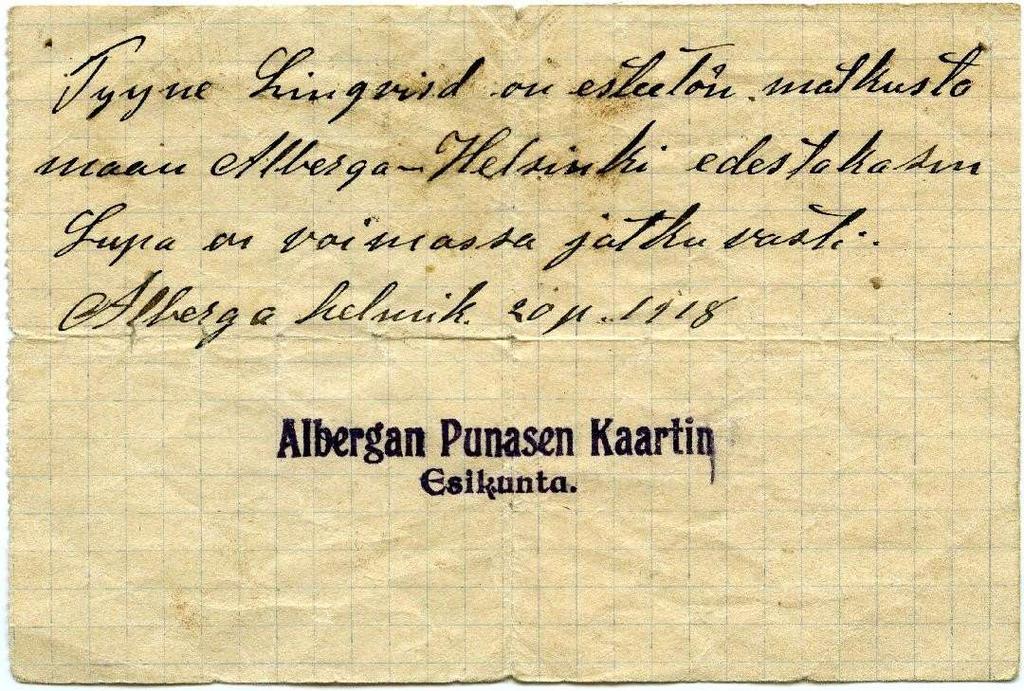 Tyyne Linqvisd on esteetön matkusta
maan Alberga-Helsinki edestakasin
Lupa on voimassa jatkuvasti.
Alberga helmik. 20 p. 1918
Albergan Punasen Kaartin
Esikunta.